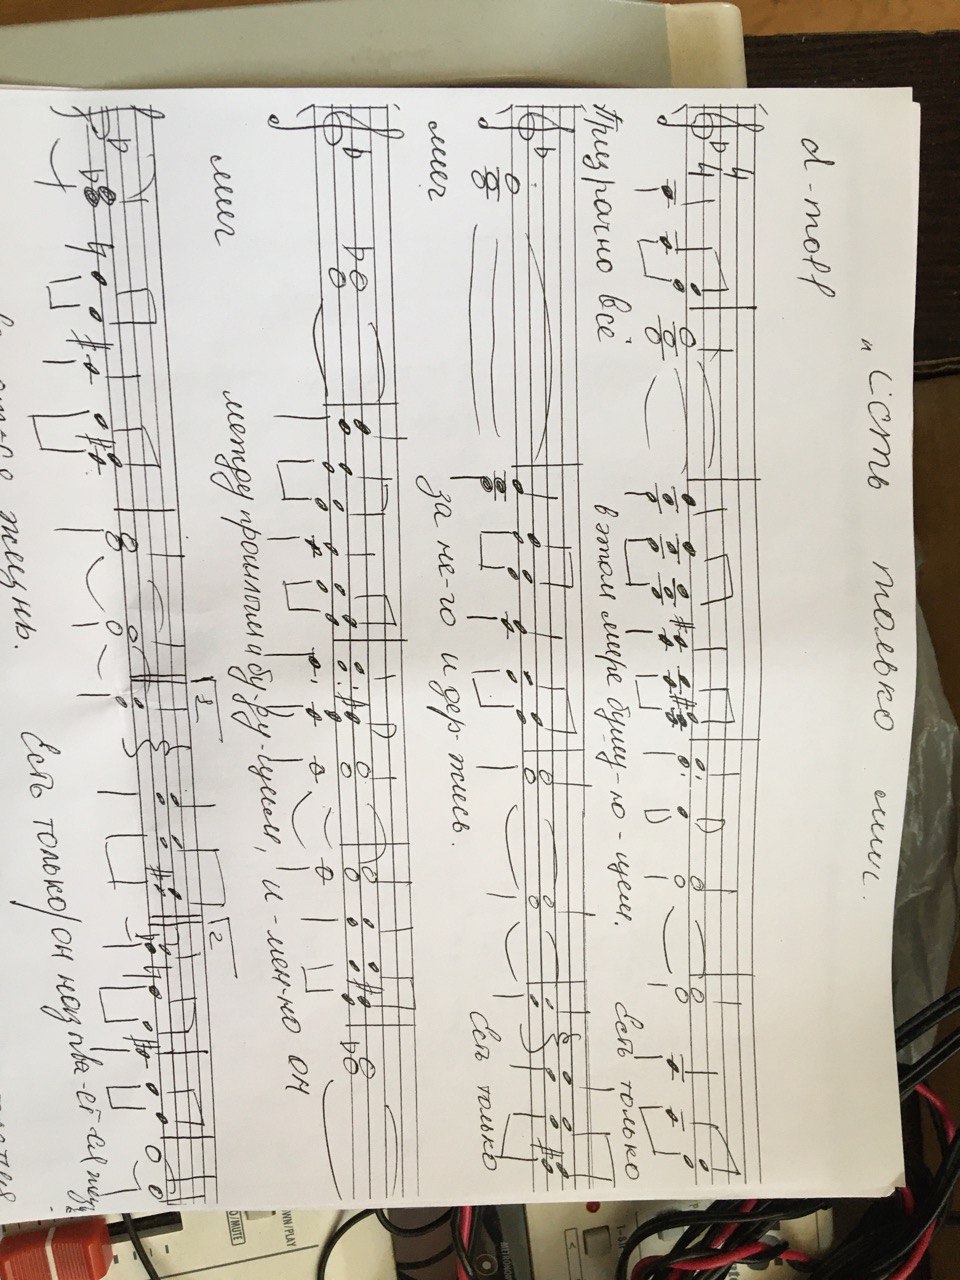 "Есть только миг.
d-moll
4
4
Призрачно всё в этом мире бушу-ю-щем. Есть только
миг за не-го и держись. Есть только
миг между прошлым и бу-ду-щим, и-мен-но он
1
2
жизнь. Есть только/он называ-ет-ся